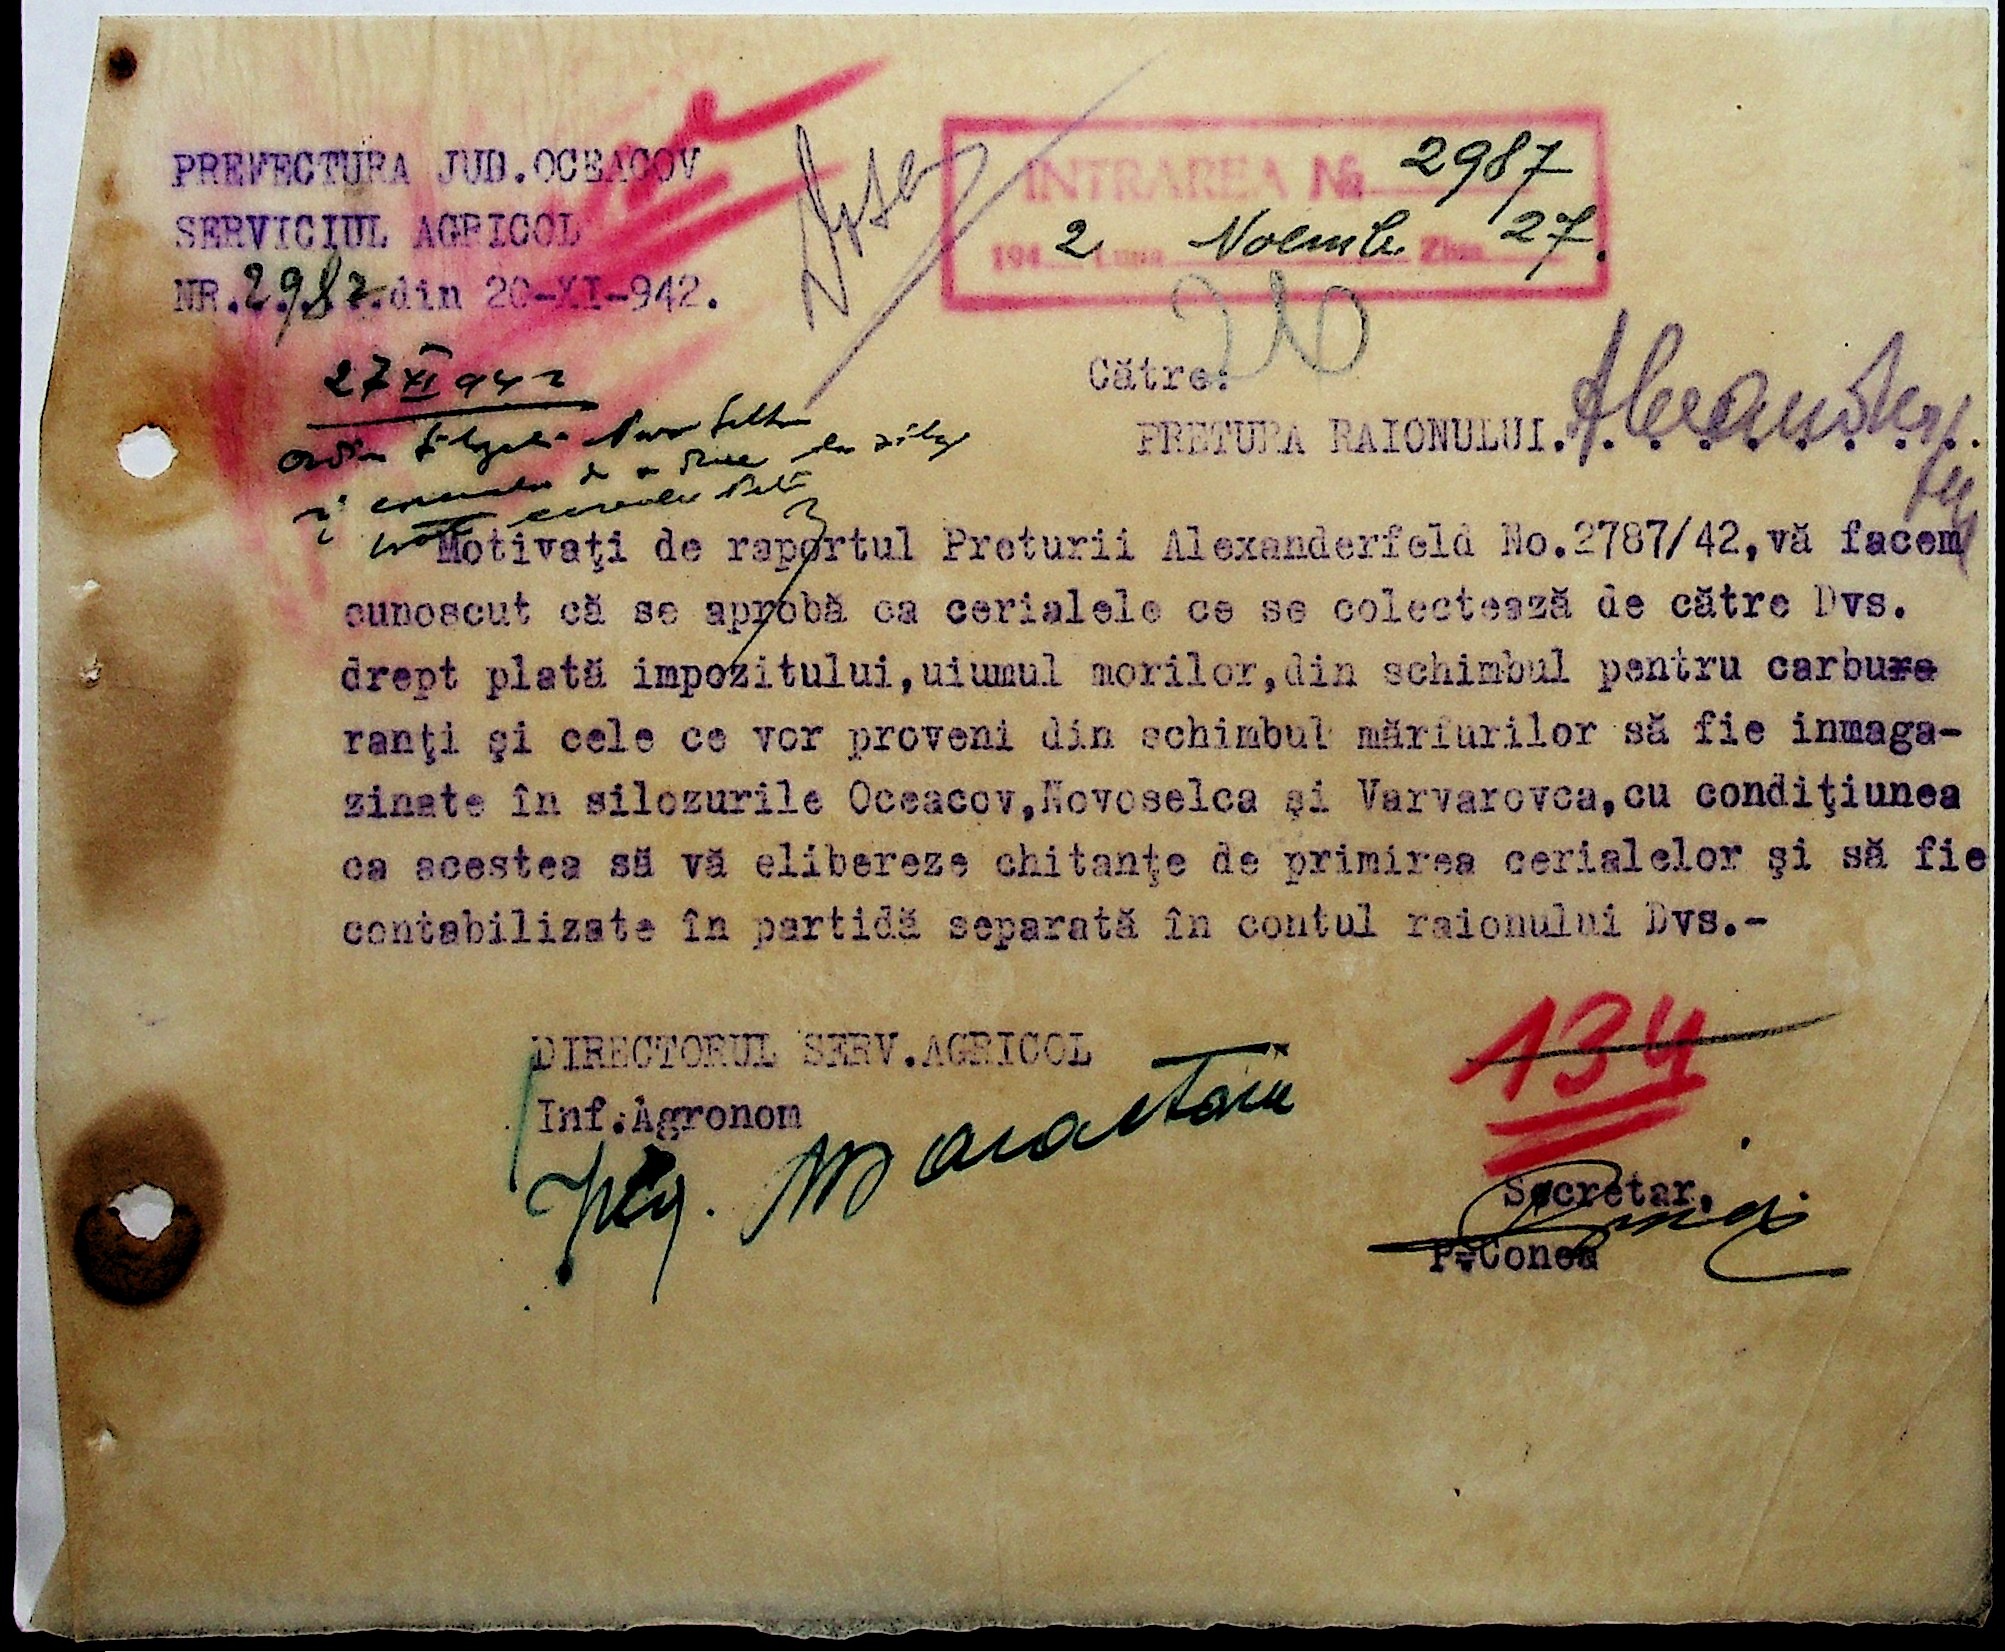 PREFECTURA JUD.OCEACOV
SERVICIUL AGRICOL
NR.2982.din 20-XI-942.
INTRAREA No 2987
194 2 Luna Noemb Ziua 27.
27 XI 942
Către:
PRETURA RAIONULUI.
Motivaţi de raportul Preturii Alexanderfeld No.2787/42,vă facem
cunoscut că se aprobă ca cerialele ce se colectează de către Dvs.
drept plată impozitului,uiumul morilor,din schimbul pentru carbure
ranţi şi cele ce vor proveni din schimbul mărfurilor să fie inmaga-
zinate în silozurile Oceacov,Novoselca şi Varvarovca,cu condiţiunea
ca acestea să vă elibereze chitanţe de primirea cerialelor şi să fie
contabilizate în partidă separată în contul raionului Dvs.-
DIRECTORUL SERV.AGRICOL
Inf.Agronom
134
Secretar,
P.Conea